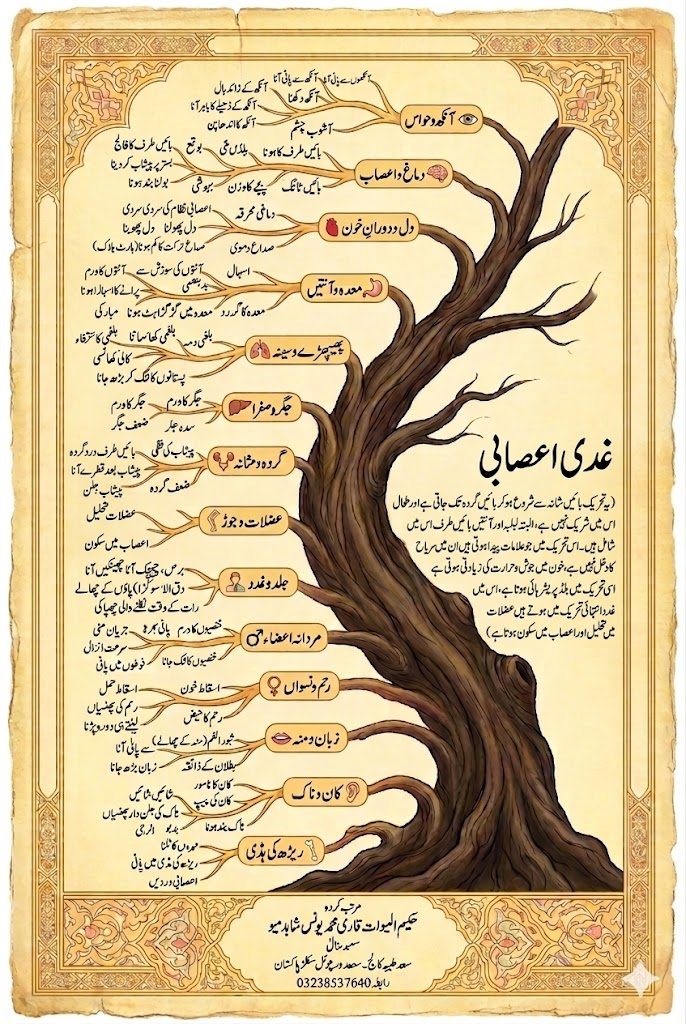 آنکھوں سے پانی آنا
آنکھ سے پانی آنا
آنکھ کے زائد بال
آنکھ دکھنا
آنکھ کے ڈھیلے کا باہر آنا
آنکھ کا اندھا پن
آشوب چشم
آنکھ و حواس
بائیں طرف کا فالج
بائیں طرف کا ہونا
بستر پر پیشاب کر دینا
بولنا بند ہونا
بیہوشی
پیچے کا وزن
بائیں ٹانگ
دماغ و اعصاب
اعصابی نظام کی سردی سردی
دماغی محرقہ
دل پھولنا
دل پھوینا
صداع حرکت کا کم ہونا (ہارٹ بلاک)
صداع دموی
دل و دوران خون
آنتوں کا ورم
آنتوں کی سوزش سے
اسہال
بدہضمی
پرانے کا اسہال ہونا
معدہ میں گڑگڑاہٹ ہونا
معدہ کا گردرد
معدہ و آنتیں
بلغمی دمہ
بلغمی کھاسا تنا
بلغمی کا استرقاء
کالی کھانسی
پستانوں کا لٹک کر بڑھ جانا
پھیپھڑے و سینہ
جگر کا ورم
جگر کا ورم
ضعف جگر
سدہ جگر
جگر و صفرا
پیشاب کی تنگی
بائیں طرف درد گردہ
پیشاب بعد قطرے آنا
پیشاب جلن
ضعف گردہ
گردہ و مثانہ
عضلات تحلیل
اعصاب میں سکون
عضلات و جوڑ
برص، چھینک آنا چھینکیں آنا
دق الاسوکڑا) پاؤں کے چھالے
رات کے وقت نکلنے والی چھپاکی
جلد و غدد
خصیوں کا درم
پانی بھرہ
جریان منی
سرعت انزالی
خصیوں کا فک جانا
فوطوں میں پانی
مردانہ اعضاء
اسقاط خون
اسقاط حمل
رحم کی پھنسیاں
رحم کا حیض
لیٹتے ہی دورہ پڑنا
رحم و نسواں
شبور الفم (منہ کے چھالے)
سے پانی آنا
بطلان کے ذائقہ
زبان بڑھ جانا
زبان و منہ
کان کا ناسور
شائیں شائیں
کان کی پیپ
ناک کی جلن دار پھنسیاں
ناک بند ہونا
بدبو
الرجی
کان و ناک
مہروں کا ٹلنا
ریڑھ کی ہڈی میں پانی
اعصابی دردیں
ریڑھ کی ہڈی
غدی اعصابی
(یہ تحریک بائیں شانہ سے شروع ہو کر بائیں گردہ تک جاتی ہے اور طحال
اس میں شریک نہیں ہے، البتہ لبلبہ اور آنتیں بائیں طرف اس میں
شامل ہیں۔ اس تحریک میں جو علامات پیدا ہوتی ہیں ان میں ریاح
کا دخل نہیں ہے، خون میں جوش و حرارت کی زیادتی ہوتی ہے
اسی تحریک میں بلڈ پریشر ہائی ہوتا ہے، اس میں
غدد انتہائی تحریک میں ہوتے ہیں عضلات
میں تحلیل اور اعصاب میں سکون ہوتا ہے)
مرتب کردہ
حکیم المیوات قاری محمد یونس شاہد میو
سعد طبیہ کالج۔ سعد ورچوئل سکلز پاکستان
رابطہ 03238537640